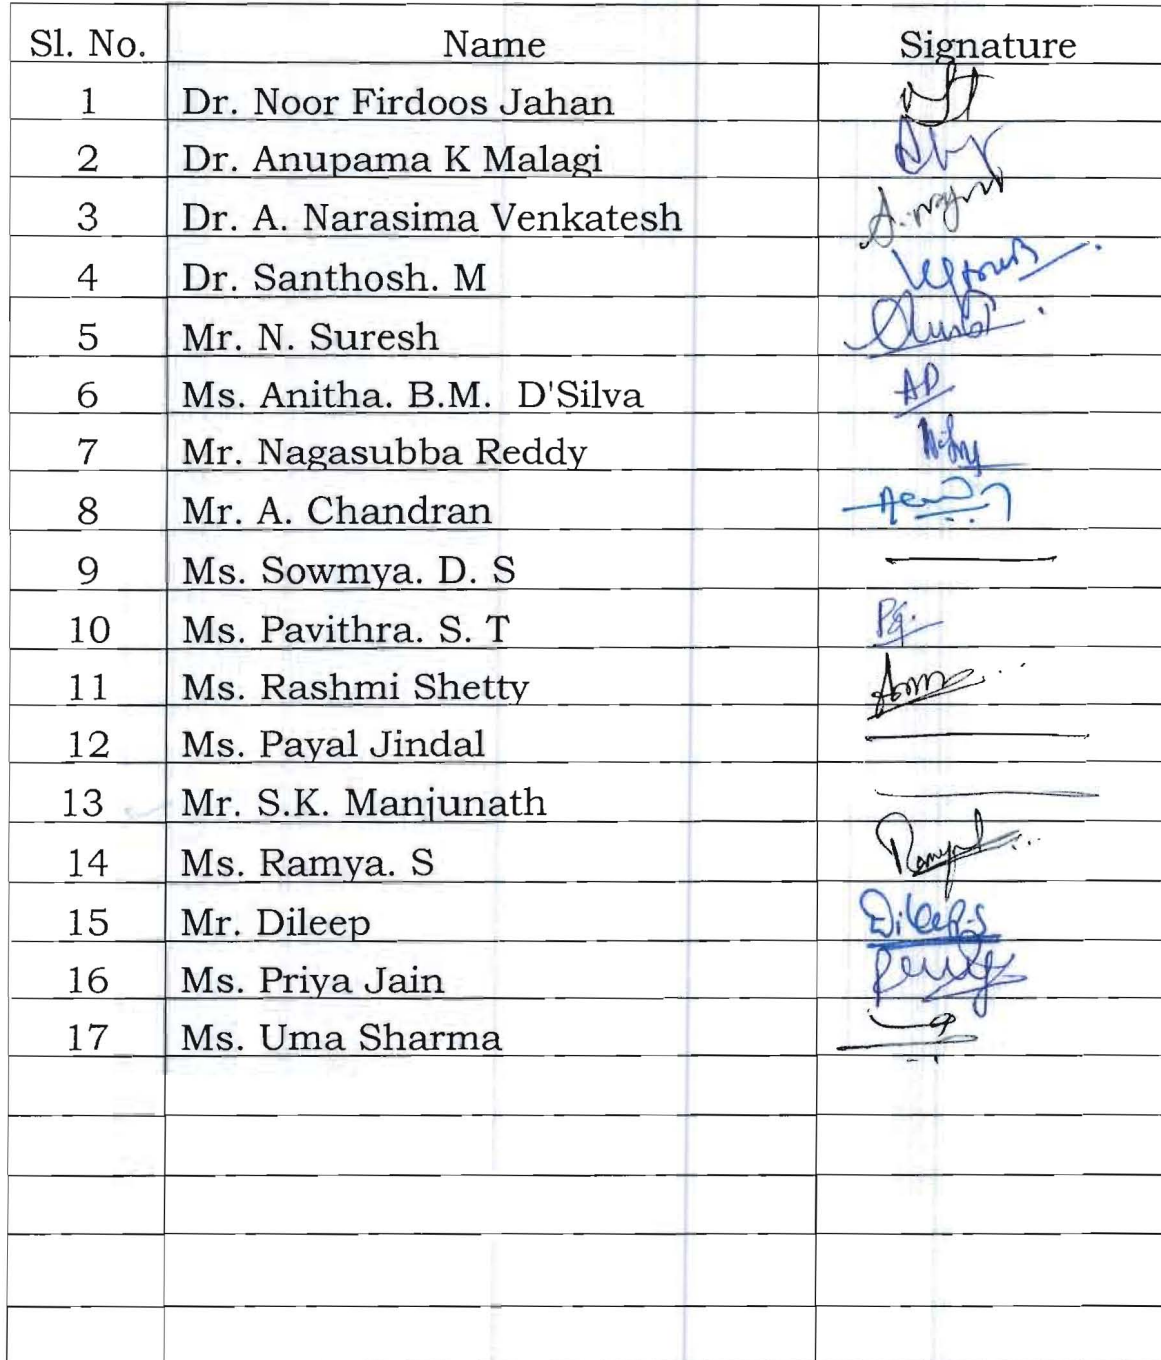 Sl. No. Name Signature
1 Dr. Noor Firdoos Jahan
2 Dr. Anupama K Malagi
3 Dr. A. Narasima Venkatesh
4 Dr. Santhosh. M
5 Mr. N. Suresh
6 Ms. Anitha. B.M. D'Silva AD
7 Mr. Nagasubba Reddy
8 Mr. A. Chandran
9 Ms. Sowmya. D. S
10 Ms. Pavithra. S. T
11 Ms. Rashmi Shetty
12 Ms. Payal Jindal
13 Mr. S.K. Manjunath
14 Ms. Ramya. S
15 Mr. Dileep Dileep.S
16 Ms. Priya Jain
17 Ms. Uma Sharma